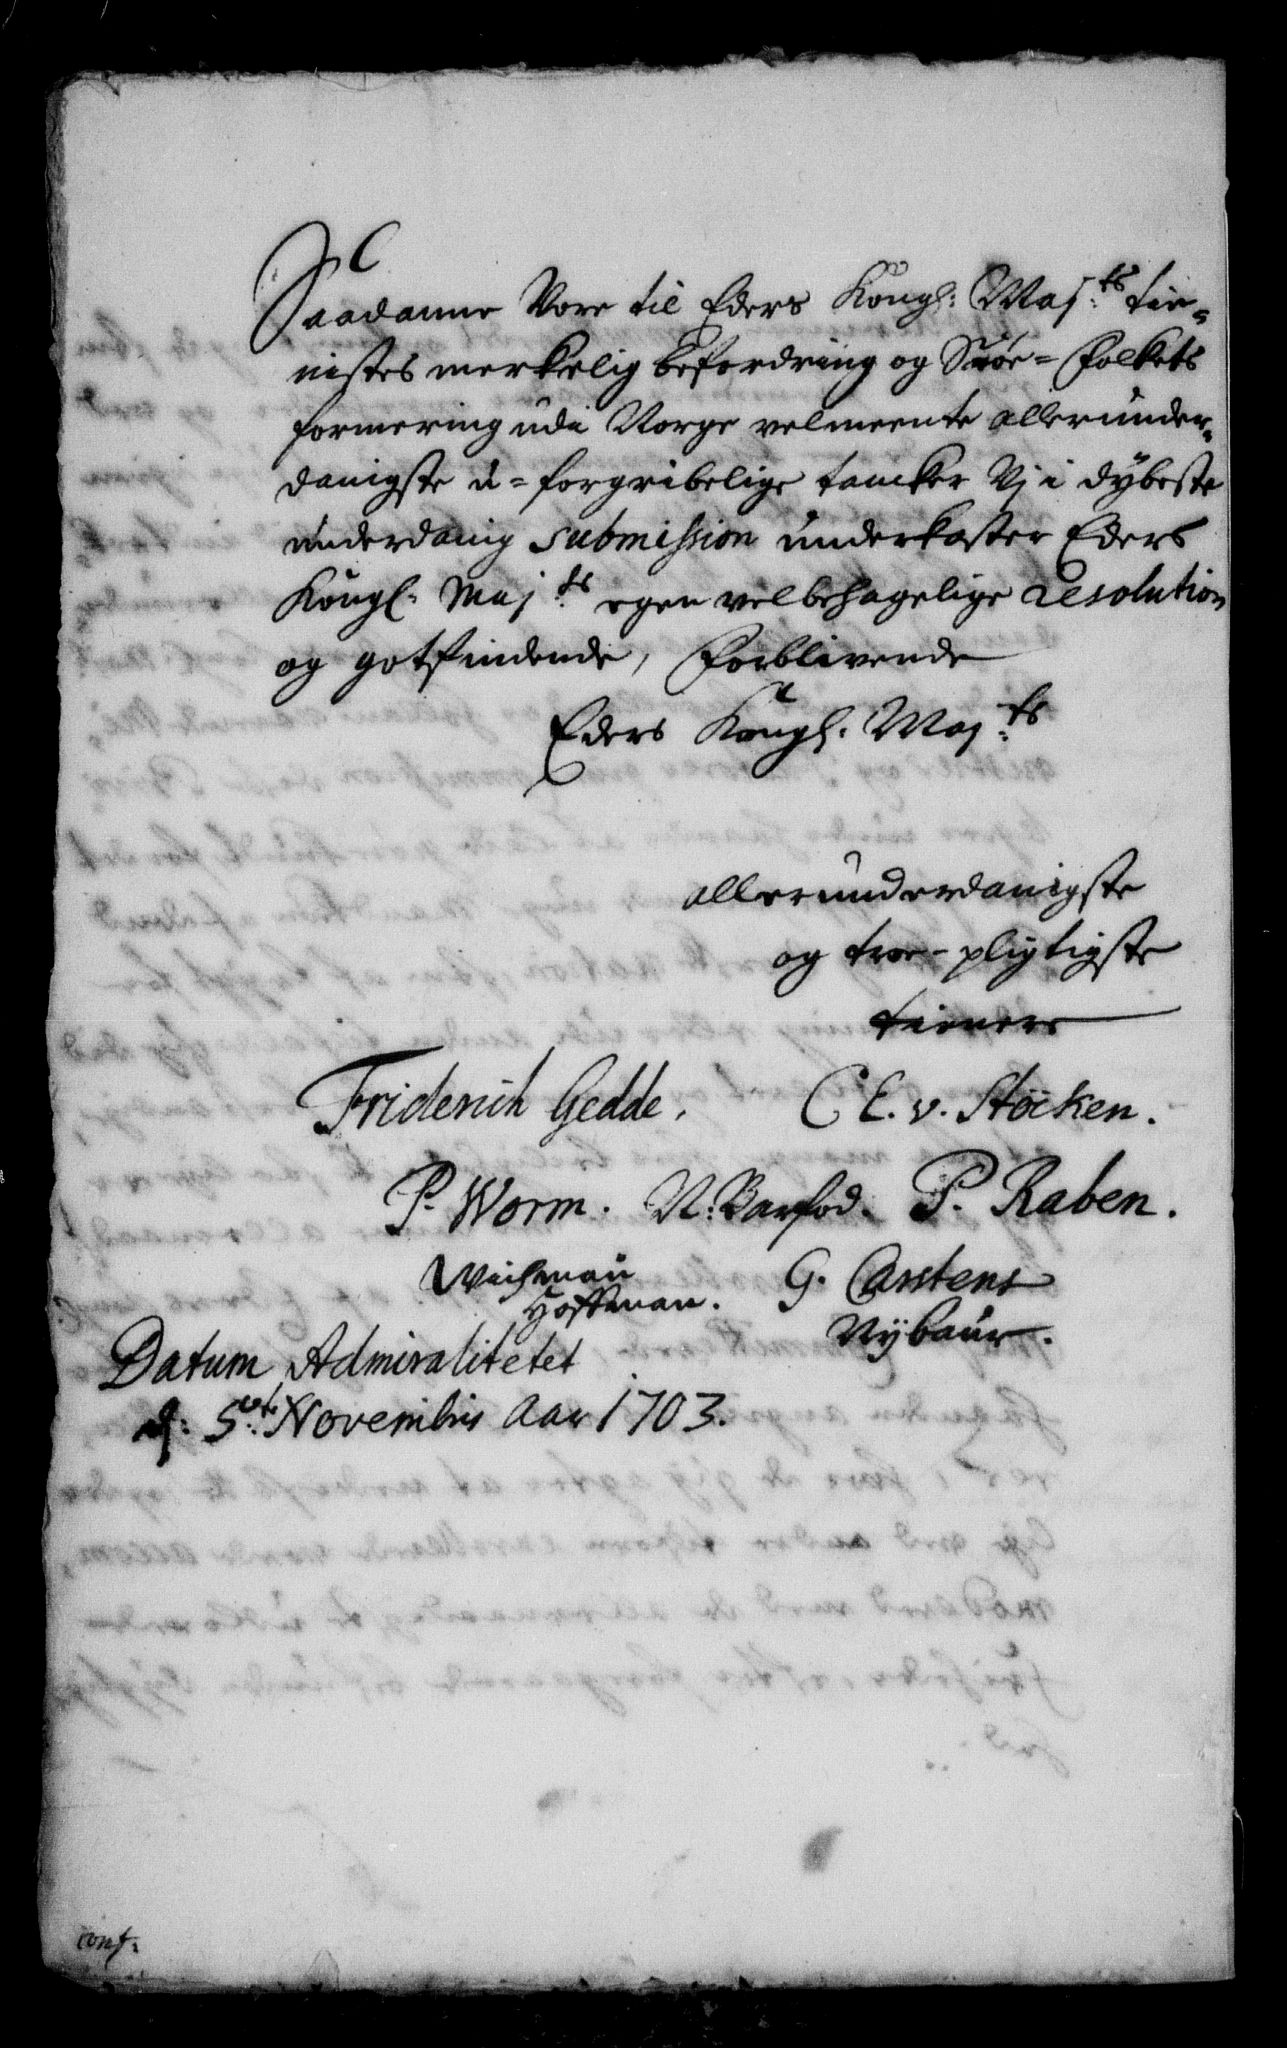 Saadanne Vore til Eders Kongl: Maj:ts tie-
nistes merkelig befordring og Søe-Folkets
formering udi Norge velmeente allerunder-
danigste u-forgribelige tancker Vj i dybeste
underdanig submission underkaster Eders
Kongl. Maj:ts egen velbehagelige resolution
og gotfindende, Forblivende
Eders Kongl. Maj:ts
allerunderdanigste
og troe-pligtigste
tienere
Friderich Gedde. C E. v. Støcken.
P. Worm. N: Barfod. P. Raben.
Wichman G. Carstens
Hoffman.
Nÿbaur.
Datum Admiralitetet
d: 5te Novembris Aar 1703.
conf: